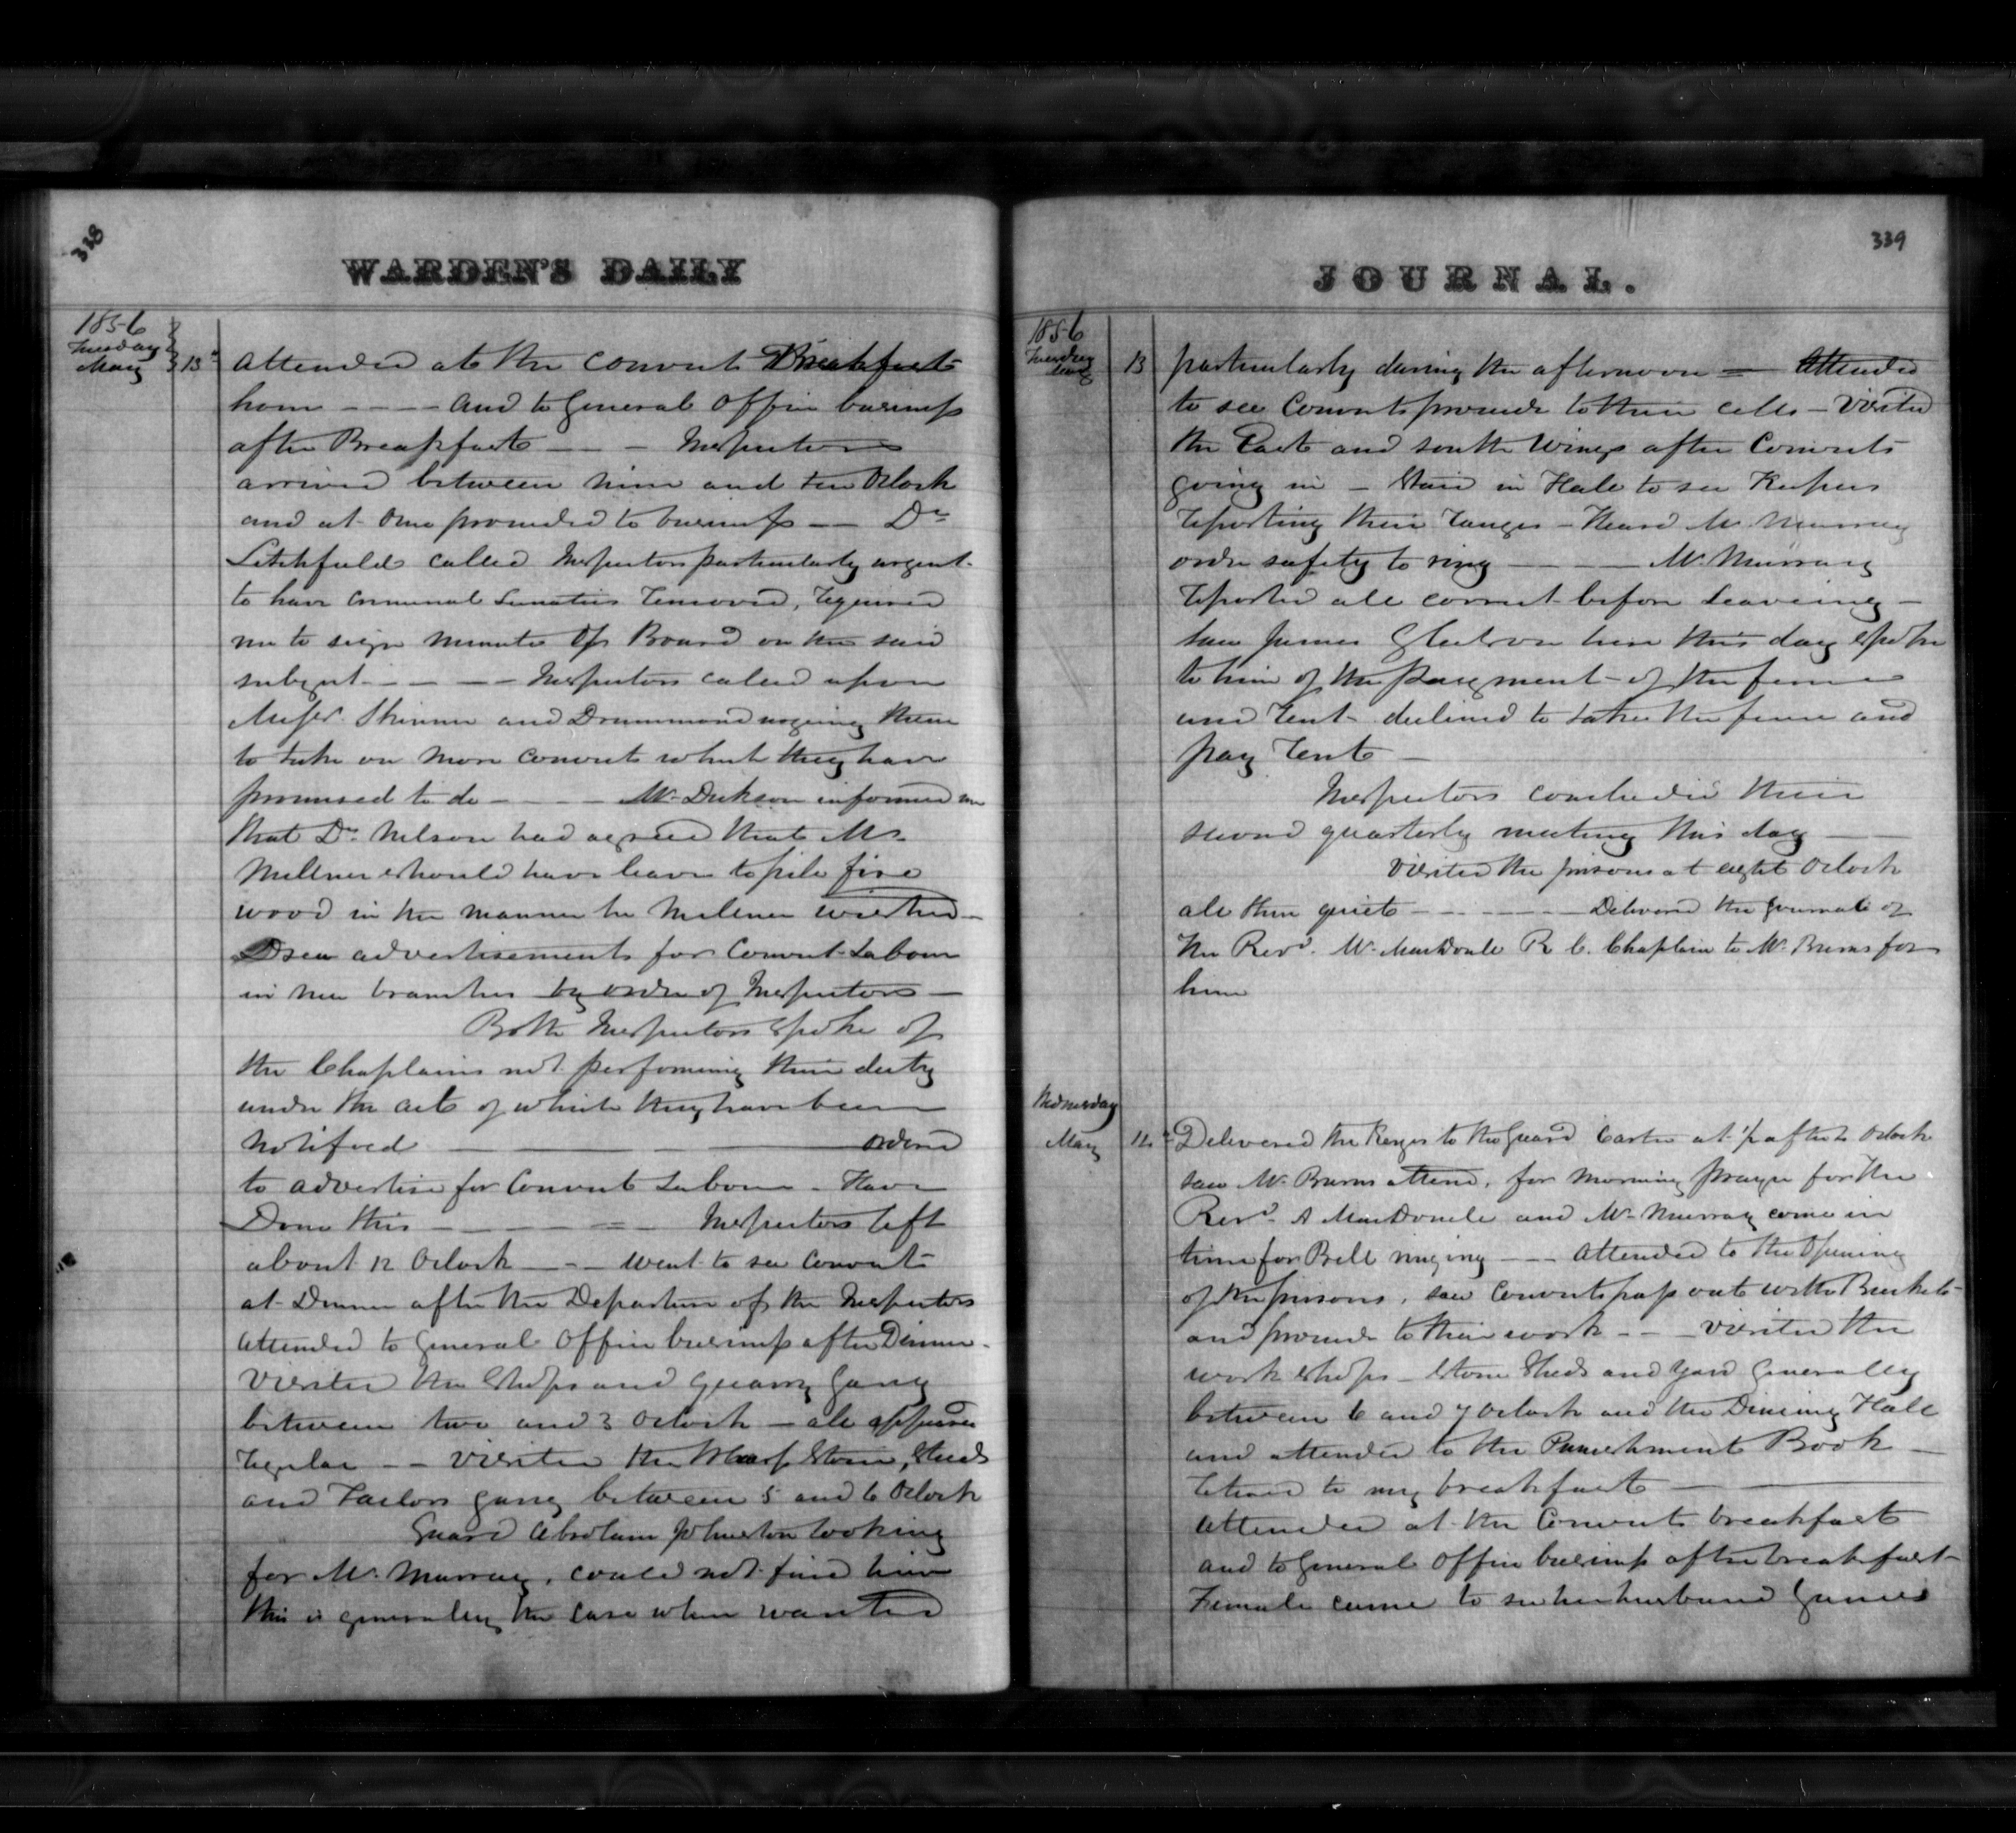 338
WARDEN'S DAILY
1856
Tuesday
May 13th
attended at the Convict Breakfast
hour - - - - and to General Office business
after Breakfast - - - Inspectors
arrived between nine and ten Oclock
and at once proceeded to business - - Dr
Litchfield called Inspectors particularly urgent
to have Criminal Lunatics removed, required
me to sign minute of Board on the said
subject - - - - - Inspectors called upon
Messrs. Skinner and Drummond urging them
to take on more Convicts which they have
promised to do - - - - Mr. Dickson informed me
that Dr. Nelson had agreed that Mr.
Millner should have leave to pile fire
wood in the manner he Millner wished -
Drew advertisements for Convict Labour
in new branches by order of Inspectors -
Both Inspectors spoke of
the Chaplains not performing their duty
under the act of which they have been
notified - - - ordered
to advertise for Convict Labour - Have
Done this - - - = - Inspectors left
about 12 Oclock - - - went to see Convicts
at Dinner after the Departure of the Inspectors
attended to General Office business after Dinner -
Visited the Shops and Quarry Gang
between two and 3 Oclock - all appeared
regular - - Visited the Wharf Stone, Sheds
and Tailors gang between 5 and 6 Oclock
Guard Abraham Johnston looking
for Mr. Murray, could not find him
this is generally the case when wanted
JOURNAL.
339
1856
Tuesday
May 13
particularly during the afternoon = Attended
to see Convicts proceed to their cells - Visited
the East and South Wings after Convicts
going in - Staid in Hall to see Keepers
reporting their ranges - Heard Mr. Murray
order safety to ring - - - Mr. Murray
reported all correct before leaving -
Saw James here this day spoke
to him of the payment of the
and rent - declined to take the and
pay rent -
Inspectors concluded their
second quarterly meeting this day -
Visited the prisons at eight Oclock
all then quiet - - - - - - Delivered the Journal of
the Revd. Mr. MacDonell R. C. Chaplain to Mr. Burns for
him
Wednesday
May 14th
Delivered the Keys to the Guard Carter at 1/2 after 4 Oclock
saw Mr. Burns attend, for morning prayer for the
Revd. A MacDonell and Mr. Murray come in
time for Bell ringing - - - Attended to the opening
of the prisons, saw Convicts pass out with Buckets
and proceed to their work - - - Visited the
work shops - Stone Sheds and yard Generally
between 6 and 7 Oclock and the Dining Hall
and attended to the Punishment Book -
retired to my breakfast - -
attended at the Convicts breakfast
and to General Office business after breakfast
Female came to see her husband James